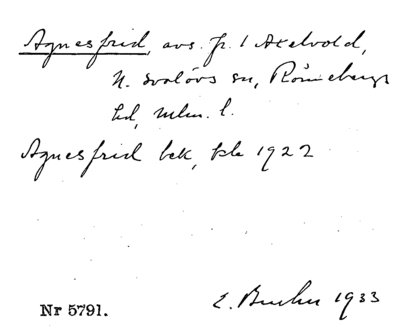 Agnesfrid, avs. fr. 1 Axelvold,
N. Svalövs sn, Rönnebergs
hd, Mlm. l.
Agnesfrid bek, kle 1922
Nr 5791.
E. 1933